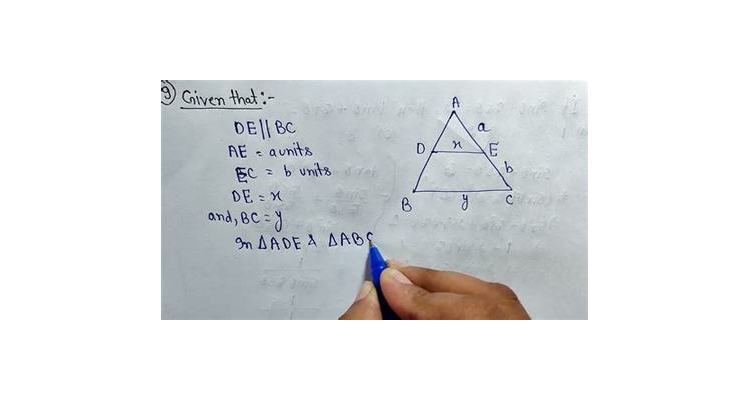 9) Given that:-
DE || BC
AE = a units
EC = b units
DE = x
and, BC = y
In ΔADE & ΔABC
A
a
D
x
E
b
B
y
C